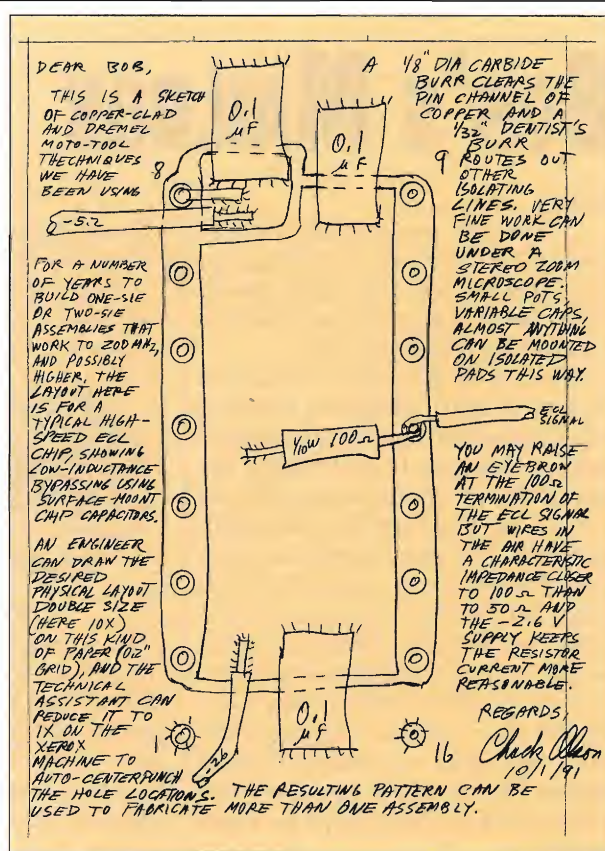 DEAR BOB,
THIS IS A SKETCH
OF COPPER-CLAD
AND DREMEL
MOTO-TOOL
THECHNIQUES
WE HAVE
BEEN USING
FOR A NUMBER
OF YEARS TO
BUILD ONE-SIE
OR TWO-SIE
ASSEMBLIES THAT
WORK TO 200 MHz,
AND POSSIBLY
HIGHER, THE
LAYOUT HERE
IS FOR A
TYPICAL HIGH-
SPEED ECL
CHIP, SHOWING
LOW-INDUCTANCE
BYPASSING USING
SURFACE-MOUNT
CHIP CAPACITORS.
AN ENGINEER
CAN DRAW THE
DESIRED
PHYSICAL LAYOUT
DOUBLE SIZE
(HERE 10X)
ON THIS KIND
OF PAPER (0.2"
GRID), AND THE
TECHNICAL
ASSISTANT CAN
REDUCE IT TO
1X ON THE
XEROX
MACHINE TO
AUTO-CENTERPUNCH
THE HOLE LOCATIONS. THE RESULTING PATTERN CAN BE
USED TO FABRICATE MORE THAN ONE ASSEMBLY.
A 1/8" DIA CARBIDE
BURR CLEARS THE
PIN CHANNEL OF
COPPER AND A
1/32" DENTIST'S
BURR
ROUTES OUT
OTHER
ISOLATING
LINES. VERY
FINE WORK CAN
BE DONE
UNDER A
STEREO ZOOM
MICROSCOPE.
SMALL POTS,
VARIABLE CAPS,
ALMOST ANYTHING
CAN BE MOUNTED
ON ISOLATED
PADS THIS WAY.
YOU MAY RAISE
AN EYEBROW
AT THE 100Ω
TERMINATION OF
THE ECL SIGNAL
BUT WIRES IN
THE AIR HAVE
A CHARACTERISTIC
IMPEDANCE CLOSER
TO 100Ω THAN
TO 50Ω AND
THE -2.6 V
SUPPLY KEEPS
THE RESISTOR
CURRENT MORE
REASONABLE.
REGARDS,
Chuck Olson
10/1/91
0.1
μF
0.1
μF
8
9
-5.2
1/10W 100Ω
ECL
SIGNAL
0.1
μF
-2.6
1
16